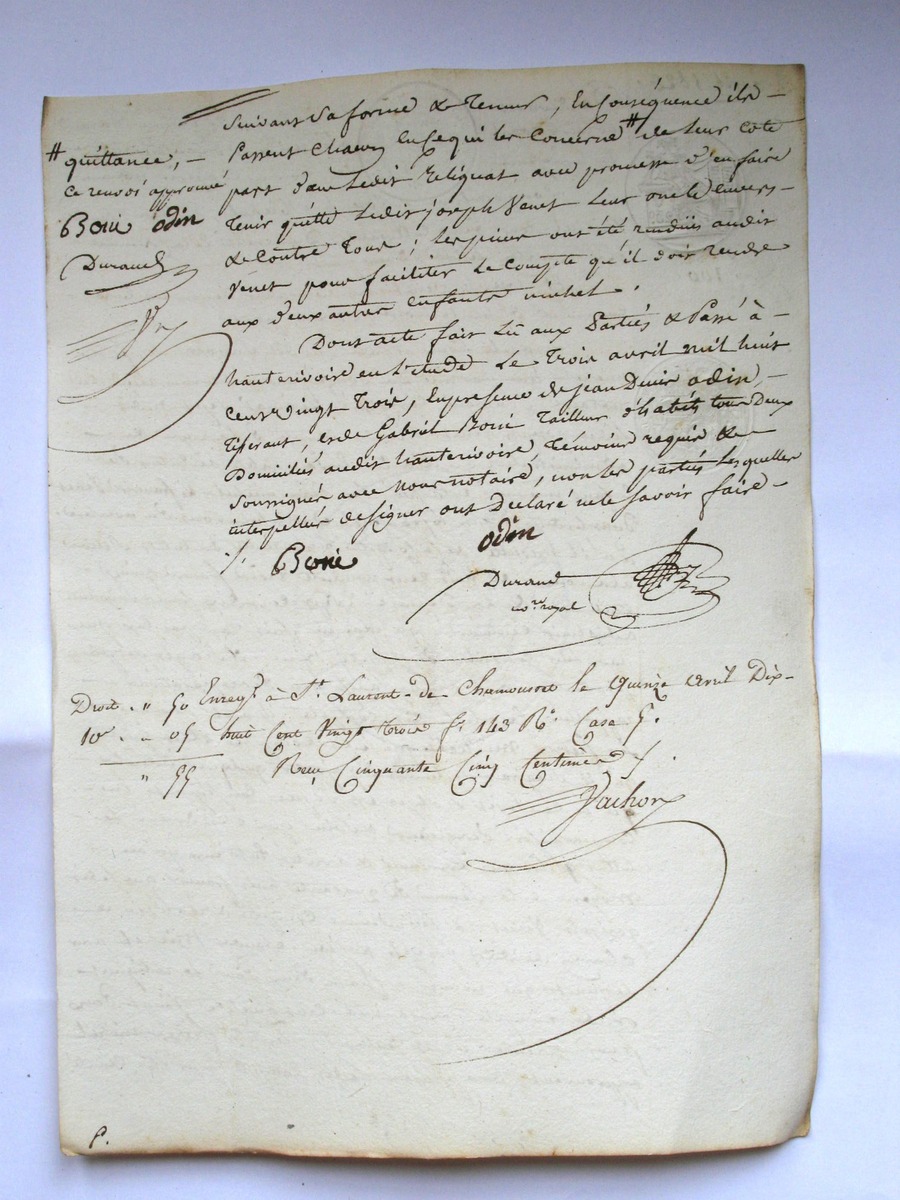 suivant Sa forme & teneur, En Conséquence ils -
passent Chacun En Ce qui les Concerne # de leur côté
# quittance, -
Ce renvoi approuvé
Borie odin
Durand
part d'audit Reliquat avec promesse d'en faire
tenir quitte ledit joseph Venet leur oncle Envers -
& Contre Tous ; les pièces ont été rendües audit
Venet pour faciliter le Compte qu'il doit rendre
aux deux autres enfants
Dont acte fait lû aux Parties & Passé à -
hauterivoire en l'étude Le Trois avril mil huit
Cent vingt Trois, En presence de jean Denis odin, -
Tisserant, et de Gabriel Borie Tailleur d'habits tous Deux
Domiciliés audit hauterivoire, Témoins requis & -
Soussignés avec Nous notaire, non les parties lesquelles
interpellées de signer ont Declaré ne le Savoir faire -
./. Borie odin
Durand
no.re royal
Droit . " 50 Enreg.é à S.t Laurent-de-Chamousset le quinze avril Dix-
10e . " 05 huit Cent Vingt trois f.o 143 R.o Case 5.
" 55 Reçu Cinquante Cinq Centimes ./.
Vachon
P.